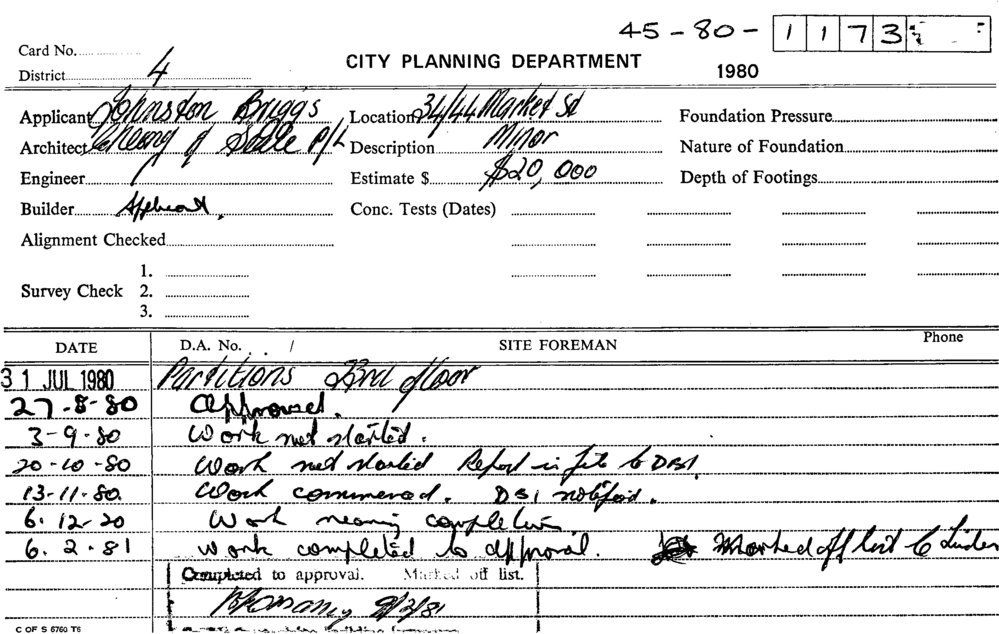 45-80-1173
Card No.
District 4
CITY PLANNING DEPARTMENT
1980
Applicant Johnston Briggs
Location 34/44 Market St
Foundation Pressure
Architect P/L
Description Minor
Nature of Foundation
Engineer
Estimate $ $20,000
Depth of Footings
Builder Applicant.
Conc. Tests (Dates)
Alignment Checked
1.
Survey Check 2.
3.
DATE D.A. No. / SITE FOREMAN Phone
31 JUL 1980 Partitions 33rd floor
27-8-80 Approved.
3-9-80 Work not started.
20-10-80 Work not started Report in file to DBI.
13-11-80. Work commenced. DBI notified.
6.12-20 Work nearing completion
6.2.81 Work completed to approval. Marked off list
Completed to approval. Marked off list.
9/2/81
C OF S 6760 T6